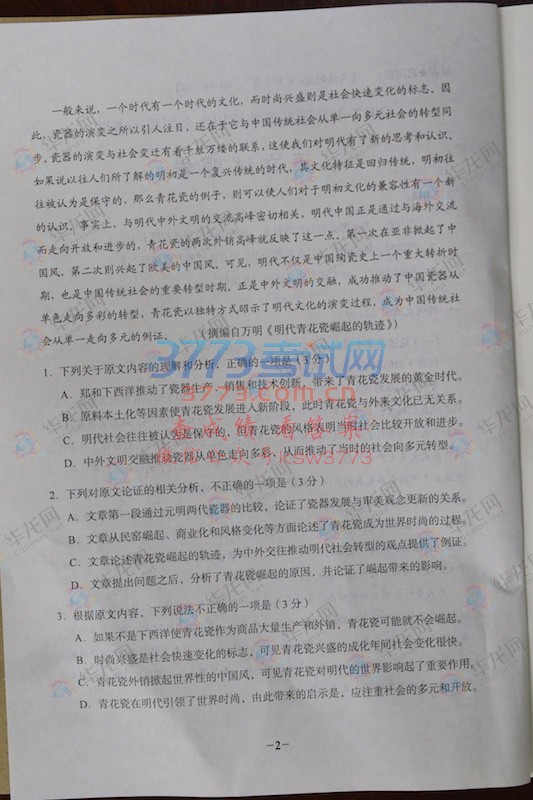 一般来说，一个时代有一个时代的文化，而时尚兴盛则是社会快速变化的标志。因
此，瓷器的演变之所以引人注目，还在于它与中国传统社会从单一向多元社会的转型同
步。瓷器的演变与社会变迁有着千丝万缕的联系，这使我们对明代有了新的思考和认识。
如果说以往人们所了解的明初是一个复兴传统的时代，其文化特征是回归传统，明初往
往被认为是保守的，那么青花瓷的例子，则可以使人们对于明初文化的兼容性有一个新
的认识。事实上，与明代中外文明的交流高峰密切相关，明代中国正是通过与海外交流
而走向开放和进步的，青花瓷的两次外销高峰就反映了这一点。第一次在亚非掀起了中
国风，第二次则兴起了欧美的中国风。可见，明代不仅是中国陶瓷史上一个重大转折时
期，也是中国传统社会的重要转型时期。正是中外文明的交融，成功推动了中国瓷器从
单色走向多彩的转型，青花瓷以独特方式昭示了明代文化的演变过程，成为中国传统社
会从单一走向多元的例证。 （摘编自万明《明代青花瓷崛起的轨迹》）
1. 下列关于原文内容的理解和分析，正确的一项是（3 分）
A. 郑和下西洋推动了瓷器生产、销售和技术创新，带来了青花瓷发展的黄金时代。
B. 原料本土化等因素使青花瓷发展进入新阶段，此时青花瓷与外来文化已无关系。
C. 明代社会往往被认为是保守的，但青花瓷的风格表明当时社会比较开放和进步。
D. 中外文明交融推动瓷器从单色走向多彩，从而推动了当时的社会向多元转型。
2. 下列对原文论证的相关分析，不正确的一项是（3 分）
A. 文章第一段通过元明两代瓷器的比较，论证了瓷器发展与审美观念更新的关系。
B. 文章从民窑崛起、商业化和风格变化等方面论述了青花瓷成为世界时尚的过程。
C. 文章论述青花瓷崛起的轨迹，为中外交往推动明代社会转型的观点提供了例证。
D. 文章提出问题之后，分析了青花瓷崛起的原因，并论证了崛起带来的影响。
3. 根据原文内容，下列说法不正确的一项是（3 分）
A. 如果不是下西洋使青花瓷作为商品大量生产和外销，青花瓷可能就不会崛起。
B. 时尚兴盛是社会快速变化的标志，可见青花瓷兴盛的成化年间社会变化很快。
C. 青花瓷外销掀起世界性的中国风，可见青花瓷对明代的世界影响起了重要作用。
D. 青花瓷在明代引领了世界时尚，由此带来的启示是，应注重社会的多元和开放。
－2－
3773考试网
www.3773.com.cn
华龙网